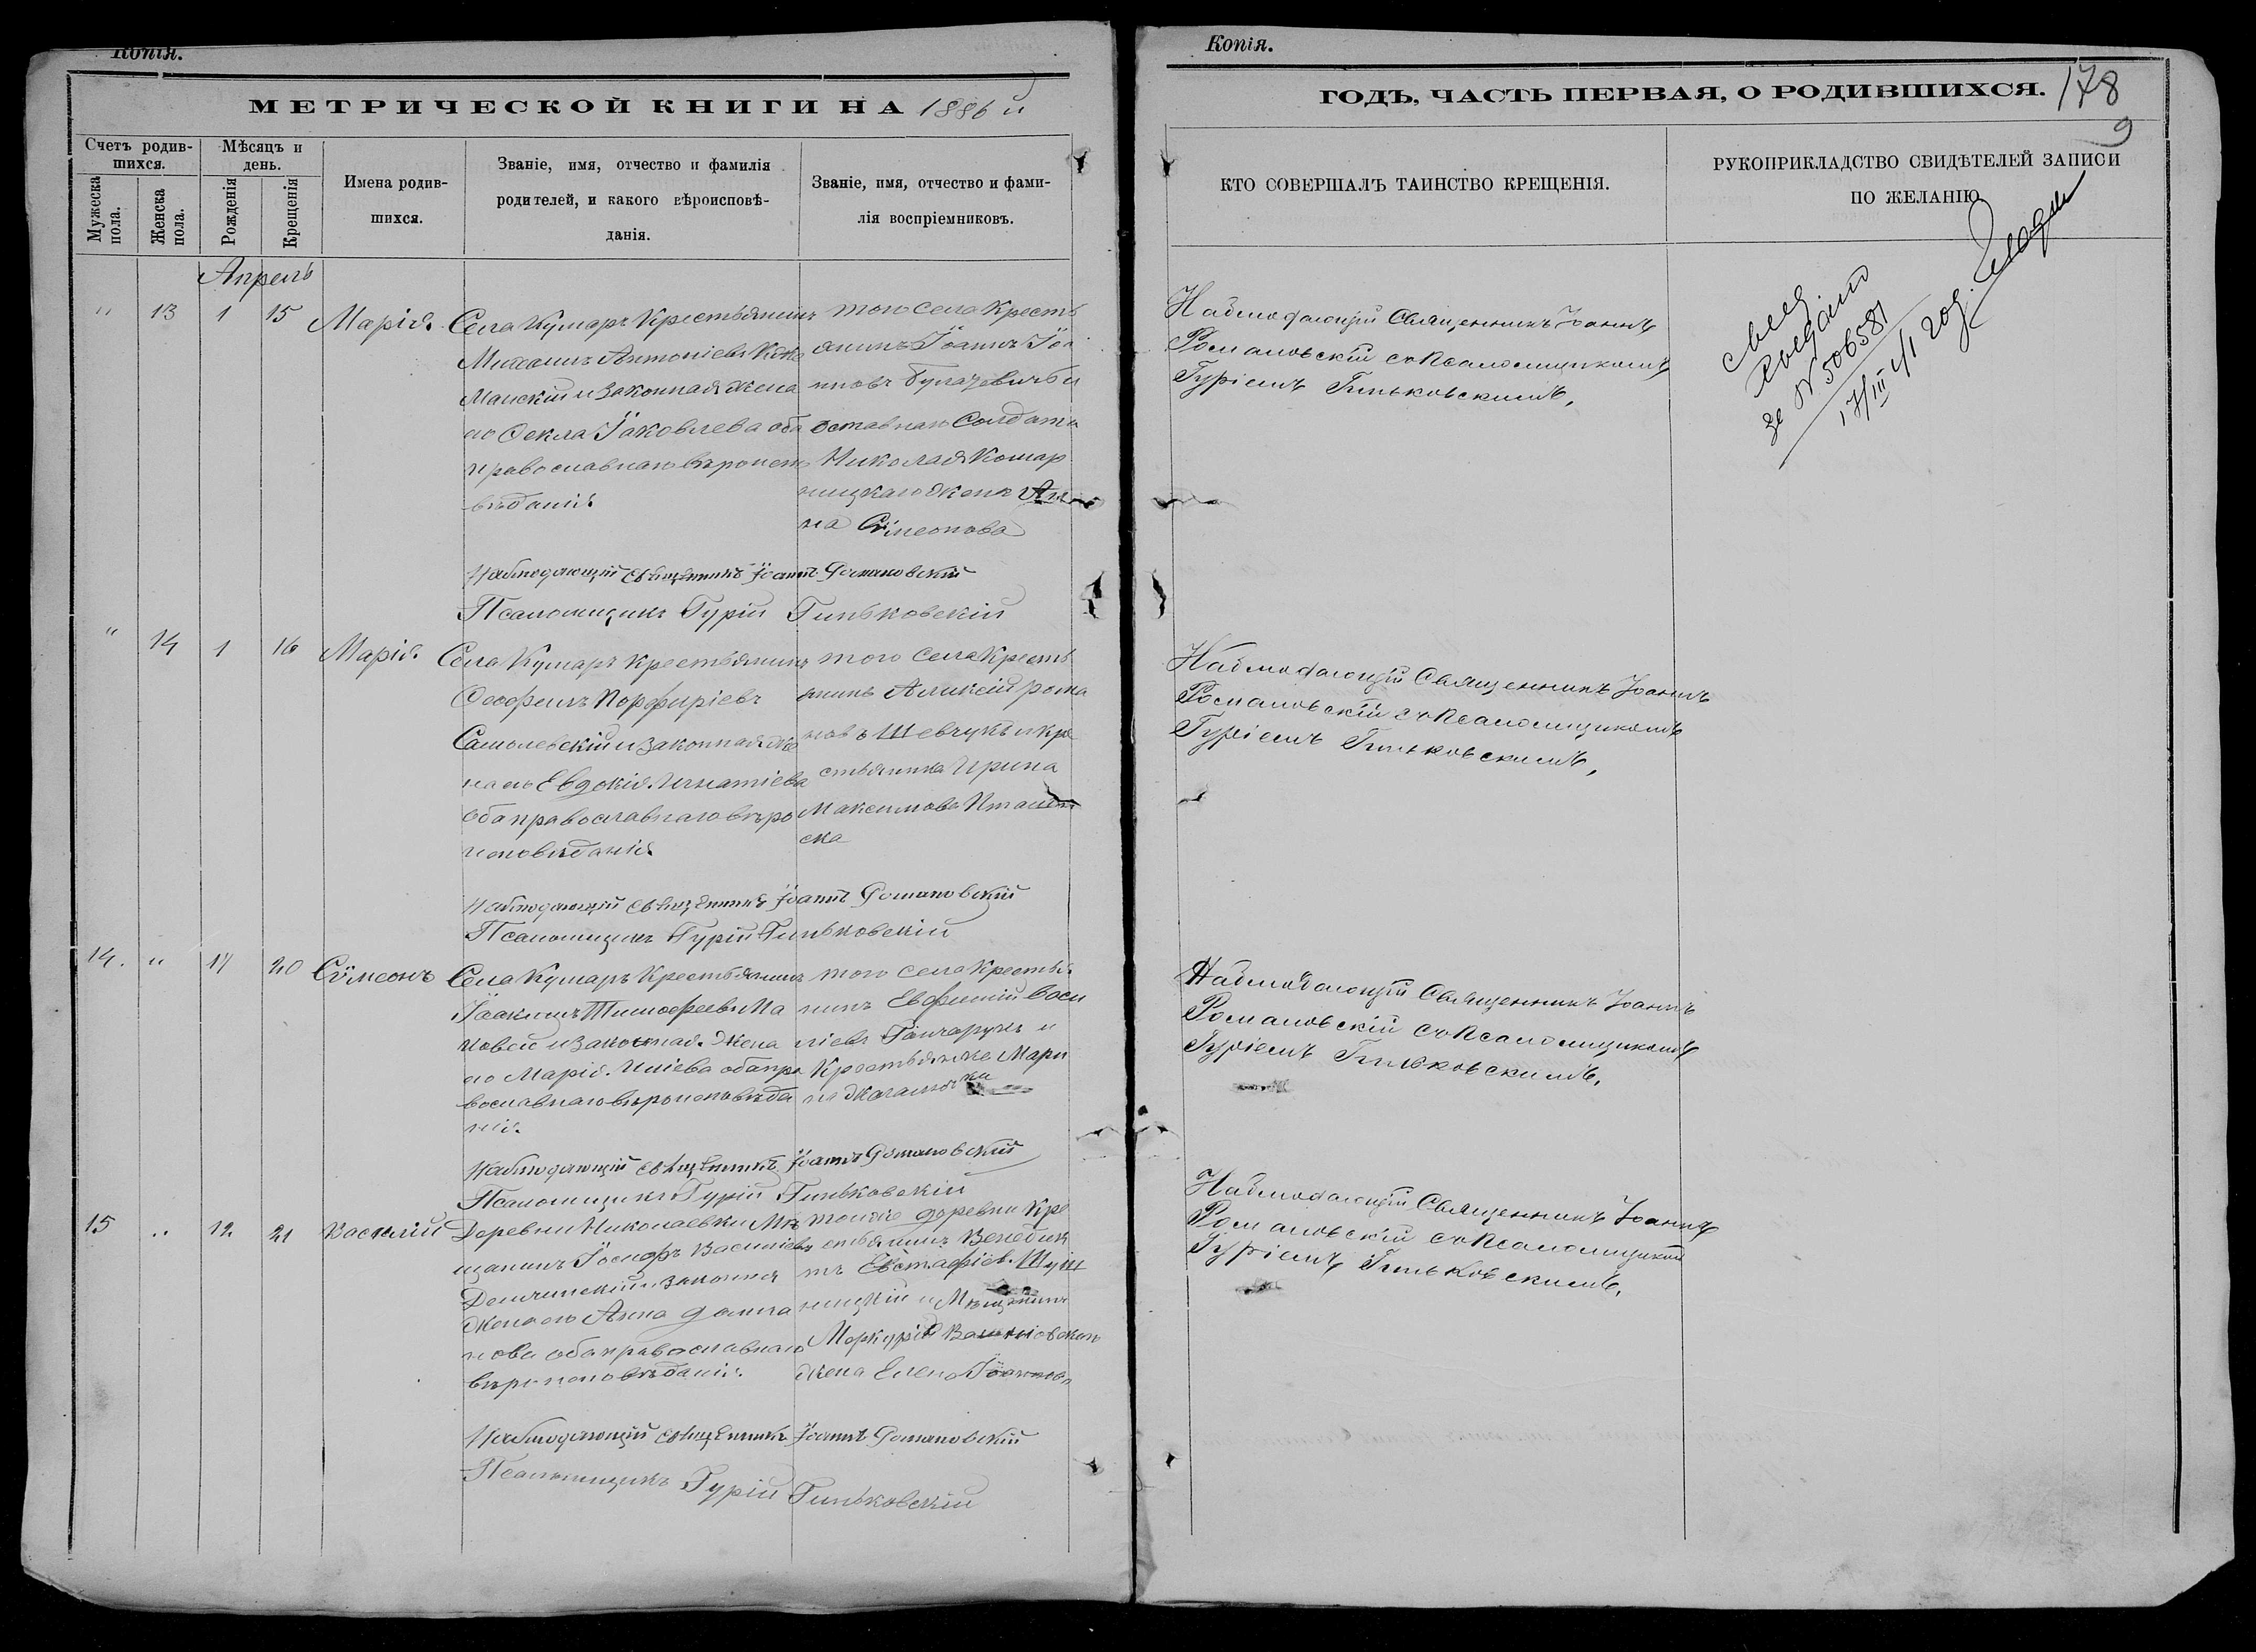 Копія.
МЕТРИЧЕСКОЙ КНИГИ НА 1886 й
Счетъ родив-
шихся.
Мѣсяцъ и
день.
Мужеска
пола.
Женска
пола.
Рожденія
Крещенія
Имена родив-
шихся.
Званіе, имя, отчество и фамилія
родителей, и какого вѣроисповѣ-
данія.
Званіе, имя, отчество и фами-
лія воспріемниковъ.
Апрель
" 13 1 15 Марія
Села Кумаръ Крестьянинъ
Михаилъ Антоніевъ
Манскій и законная жена
его Ѳекла Іаковлева оба
православнаго вѣроиспо
вѣданія
того села Кресть
янинъ Іоаннъ Іоа
нновъ и
оставнаго Солдата
Николая Комар
ницкаго жена Ан
на Сѵмеонова
Наблюдающій Священникъ Іоаннъ Романовскій
Псаломщикъ Гурій Гиньковскій
" 14 1 16 Марія
Села Кумаръ крестьянинъ
Ѳеофилъ Порфиріевъ
и законная же
на его Евдокія Игнатіева
оба православнаго вѣро
исповѣданія
того села Кресть
янинъ Алексій Рома
новъ Шевчукъ и кре
стьянка Ирина
Максимова
ска
Наблюдающій Священникъ Іоаннъ Романовскій
Псаломщикъ Гурій Гиньковскій
14. " 17 20 Сѵмеонъ
Села Кумаръ Крестьянинъ
Іоакимъ Тимофеевъ Па
новей и законная жена
его Марія Иліева оба пра
вославнаго вѣроисповѣда
нія
того села Крестья
нинъ Евфимій Васи
ліевъ Гончарукъ и
Крестьянка Мари
Наблюдающій Священникъ Іоаннъ Романовскій
Псаломщикъ Гурій Гиньковскій
15 " 12 21 Василій
Деревни Николаевки Мѣ
щанинъ Іосифъ Василіевъ
и законная
жена его Анна Даміа
нова оба православнаго
вѣроисповѣданія
тойже деревни Кре
стьянинъ Венедик
тъ Евстафіев.
ницкій и Мѣщанина
Меркурія
жена Елена Іоаннова
Наблюдающій Священникъ Іоаннъ Романовскій
Псаломщикъ Гурій Гиньковскій
Копія.
ГОДЪ, ЧАСТЬ ПЕРВАЯ, О РОДИВШИХСЯ.
178
9
КТО СОВЕРШАЛЪ ТАИНСТВО КРЕЩЕНІЯ.
РУКОПРИКЛАДСТВО СВИДѢТЕЛЕЙ ЗАПИСИ
ПО ЖЕЛАНІЮ
Наблюдающій Священникъ Іоаннъ
Романовскій съ Псаломщикомъ
Гуріемъ Гиньковскимъ,
за № 506581
17/III 41 год.
Наблюдающій Священникъ Іоаннъ
Романовскій съ Псаломщикомъ
Гуріемъ Гиньковскимъ,
Наблюдающій Священникъ Іоаннъ
Романовскій съ Псаломщикомъ
Гуріемъ Гиньковскимъ,
Наблюдающій Священникъ Іоаннъ
Романовскій съ Псаломщикомъ
Гуріемъ Гиньковскимъ,